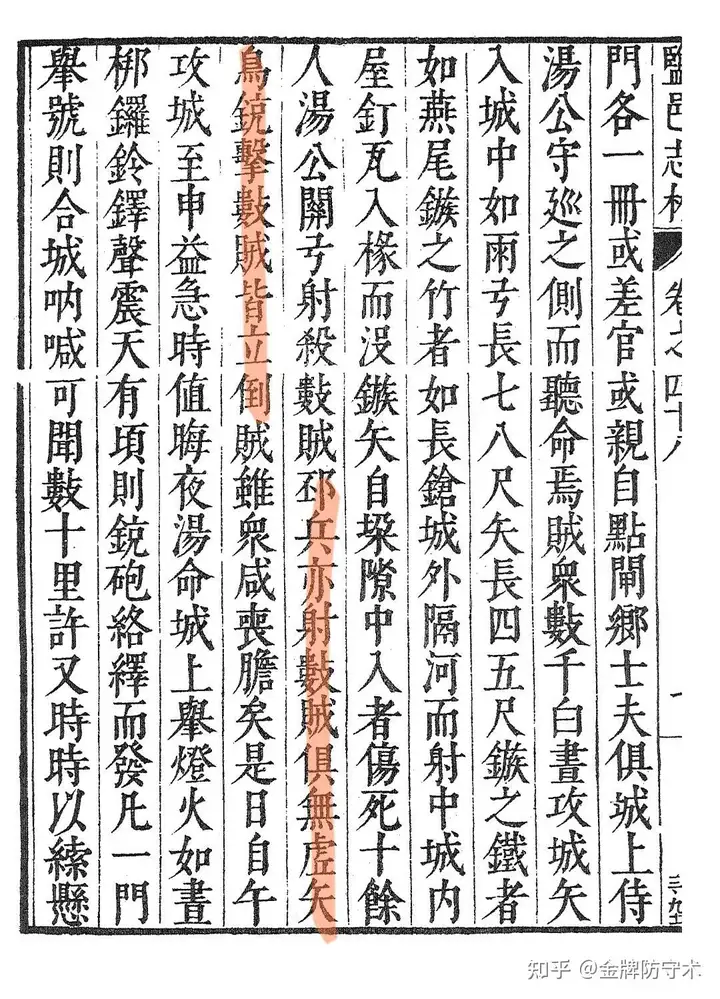 鹽邑志林 卷之四十八
門各一冊或差官或親自點閘鄉士夫俱城上侍
湯公守廵之側而聽命焉賊衆數千白晝攻城矢
入城中如雨弓長七八尺矢長四五尺鏃之鐵者
如燕尾鏃之竹者如長鎗城外隔河而射中城内
屋釘瓦入椽而沒鏃矢自垜隙中入者傷死十餘
人湯公關弓射殺數賊邳兵亦射數賊俱無虛矢
鳥銃擊數賊皆立倒賊雖衆咸喪膽矣是日自午
攻城至申益急時值晦夜湯命城上舉燈火如晝
梆鑼鈴鐸聲震天有頃則銃砲絡繹而發凡一門
舉號則合城吶喊可聞數十里許又時時以縤懸
知乎 @金牌防守术